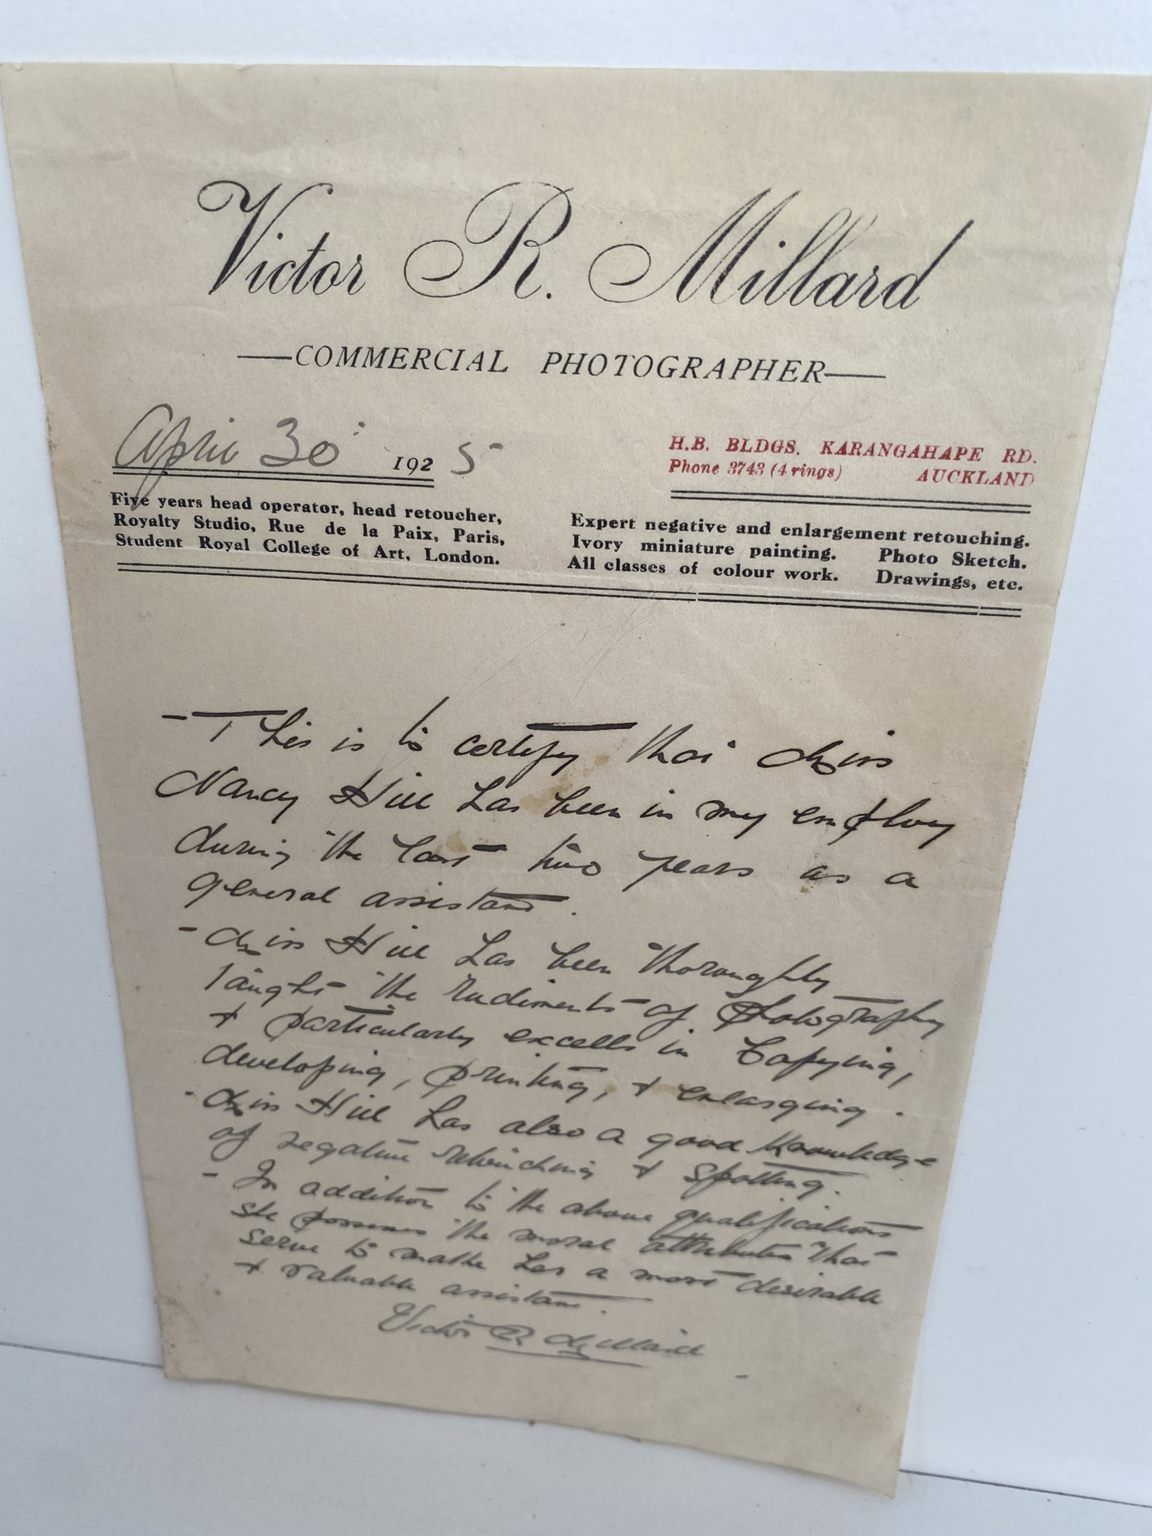 Victor R. Millard
COMMERCIAL PHOTOGRAPHER
April 30 1925
H.B. BLDGS. KARANGAHAPE RD.
Phone 3743 (4 rings) AUCKLAND
Five years head operator, head retoucher,
Royalty Studio, Rue de la Paix, Paris,
Student Royal College of Art, London.
Expert negative and enlargement retouching.
Ivory miniature painting. Photo Sketch.
All classes of colour work. Drawings, etc.
- This is to certify that Miss
Nancy Hill has been in my employ
during the last two years as a
general assistant.
- Miss Hill has been thoroughly
taught the rudiments of Photography
+ particularly excells in Copying,
developing, printing, + enlarging.
- Miss Hill has also a good knowledge
of negative retouching + spotting.
- In addition to the above qualifications
she possesses the moral attributes that
serve to make her a most desirable
+ valuable assistant.
Victor R Millard